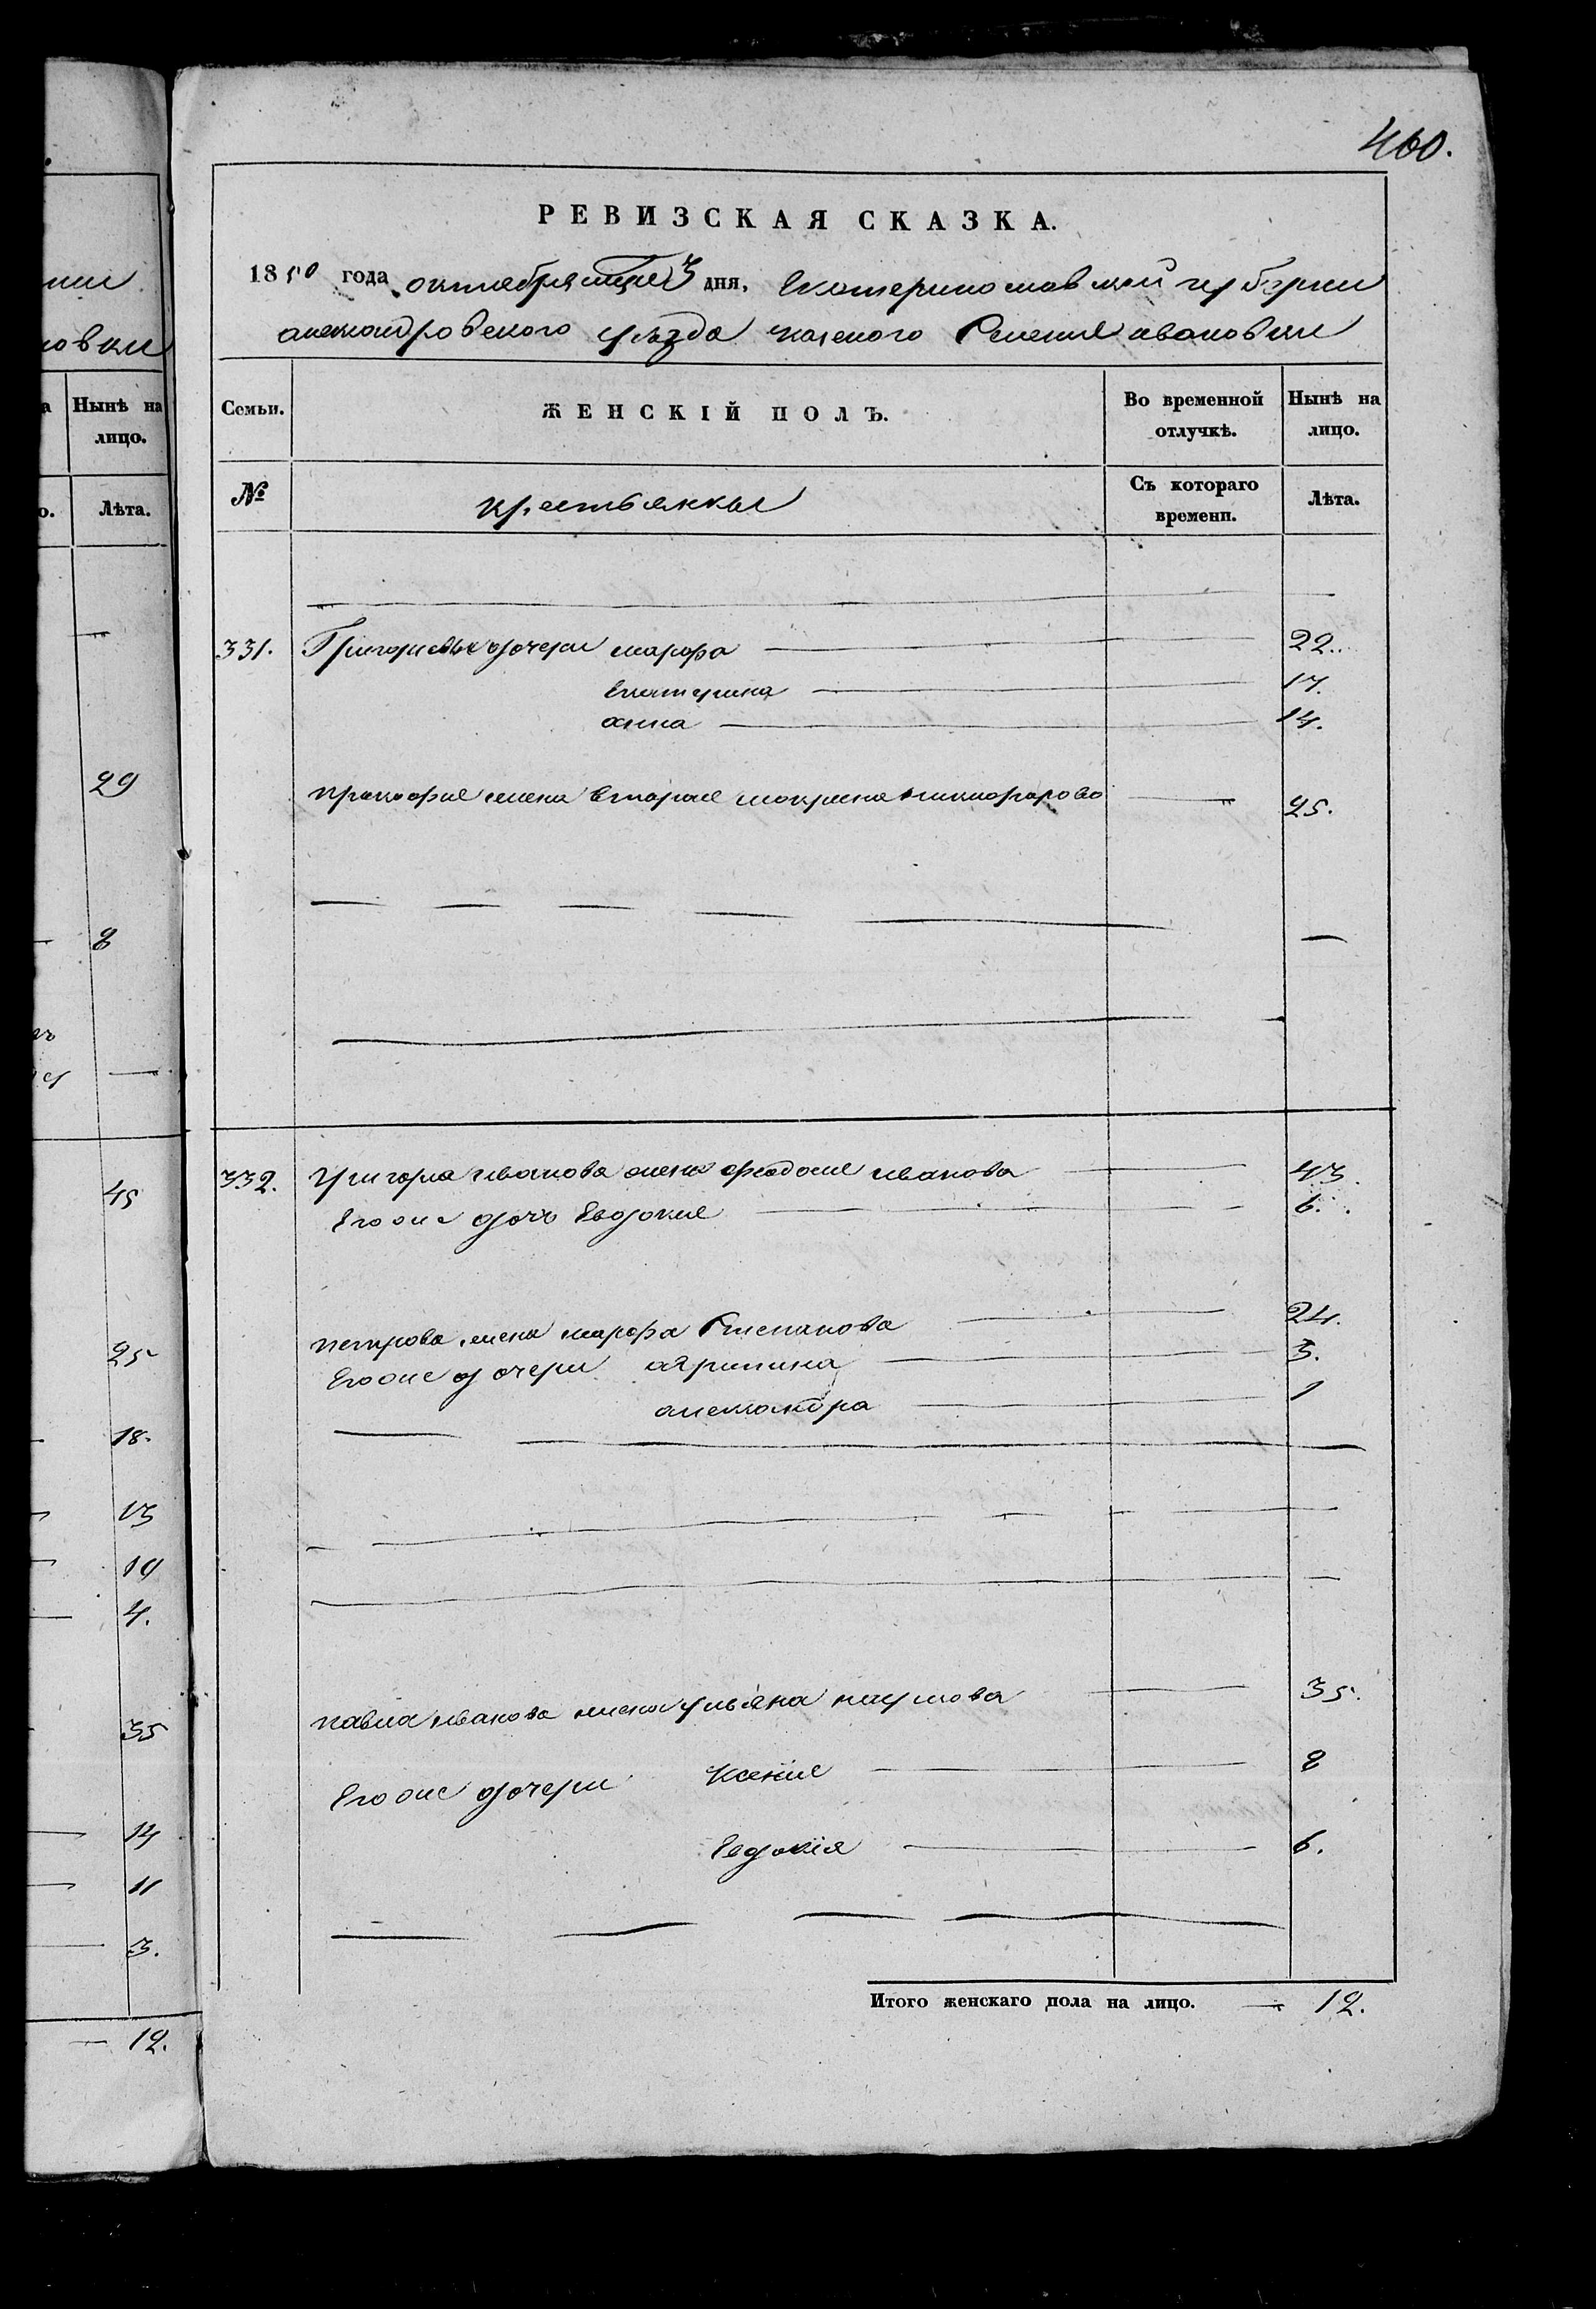 460.
РЕВИЗСКАЯ СКАЗКА.
1850 года октября 3 дня, Екатеринославской губернии
александровского уезда казеного Селения ивановки
нии
новки
Нынѣ на
лицо.
Лѣта.
29
8
45
25
18.
13
10
4.
35
14
11
3.
12.
Семьи.
ЖЕНСКІЙ ПОЛЪ.
Во временной
отлучкѣ.
Нынѣ на
лицо.
№
крестьянки
Съ котораго
времени.
Лѣта.
331. Григорьевы дочери марфа 22.
Екатерина 17.
анна 14.
прокофия жена вторая мокрина никифорова 25.
332. григория иванова жена феодосия иванова 43.
Его же дочь Евдокия 6.
петрова жена марфа Степанова 24.
Его же дочери агрипина 3.
александра 1
павла иванова жена ульяна наумова 35.
Его же дочери Ксения 8
Евдокія 6.
Итого женскаго пола на лицо. — 12.